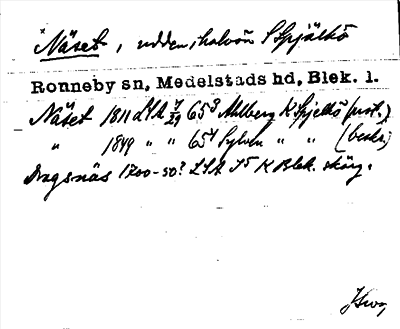 Näset, udden i halvön Spjälkö
Ronneby sn, Medelstads hd, Blek. l.
Näset 1811 LSA 7/29 65³ Ahlberg K Spjelkö (prot.)
" 1849 " " 65⁴ Sylvén " " (beskr.)
Dragsnäs 1700-50? LSA I5 K Blek. skärg.